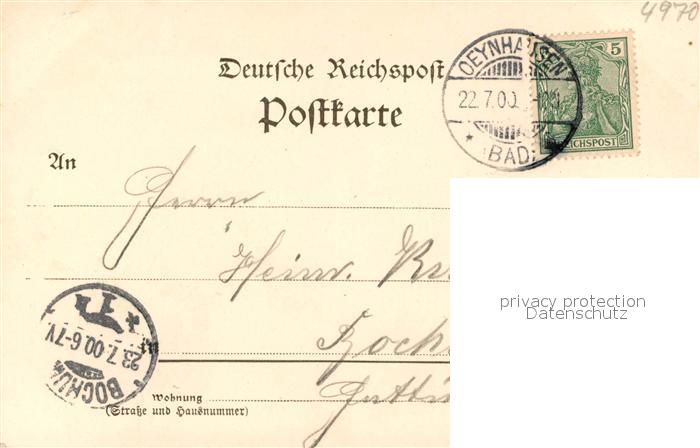 4970
Deutsche Reichspost
Postkarte
OEYNHAUSEN
22.7.00
* BAD *
5
REICHSPOST
An
Herrn
Heinr.
privacy protection
Datenschutz
BOCHUM
23.7.00.6-7V.
Wohnung
(Straße und Hausnummer)